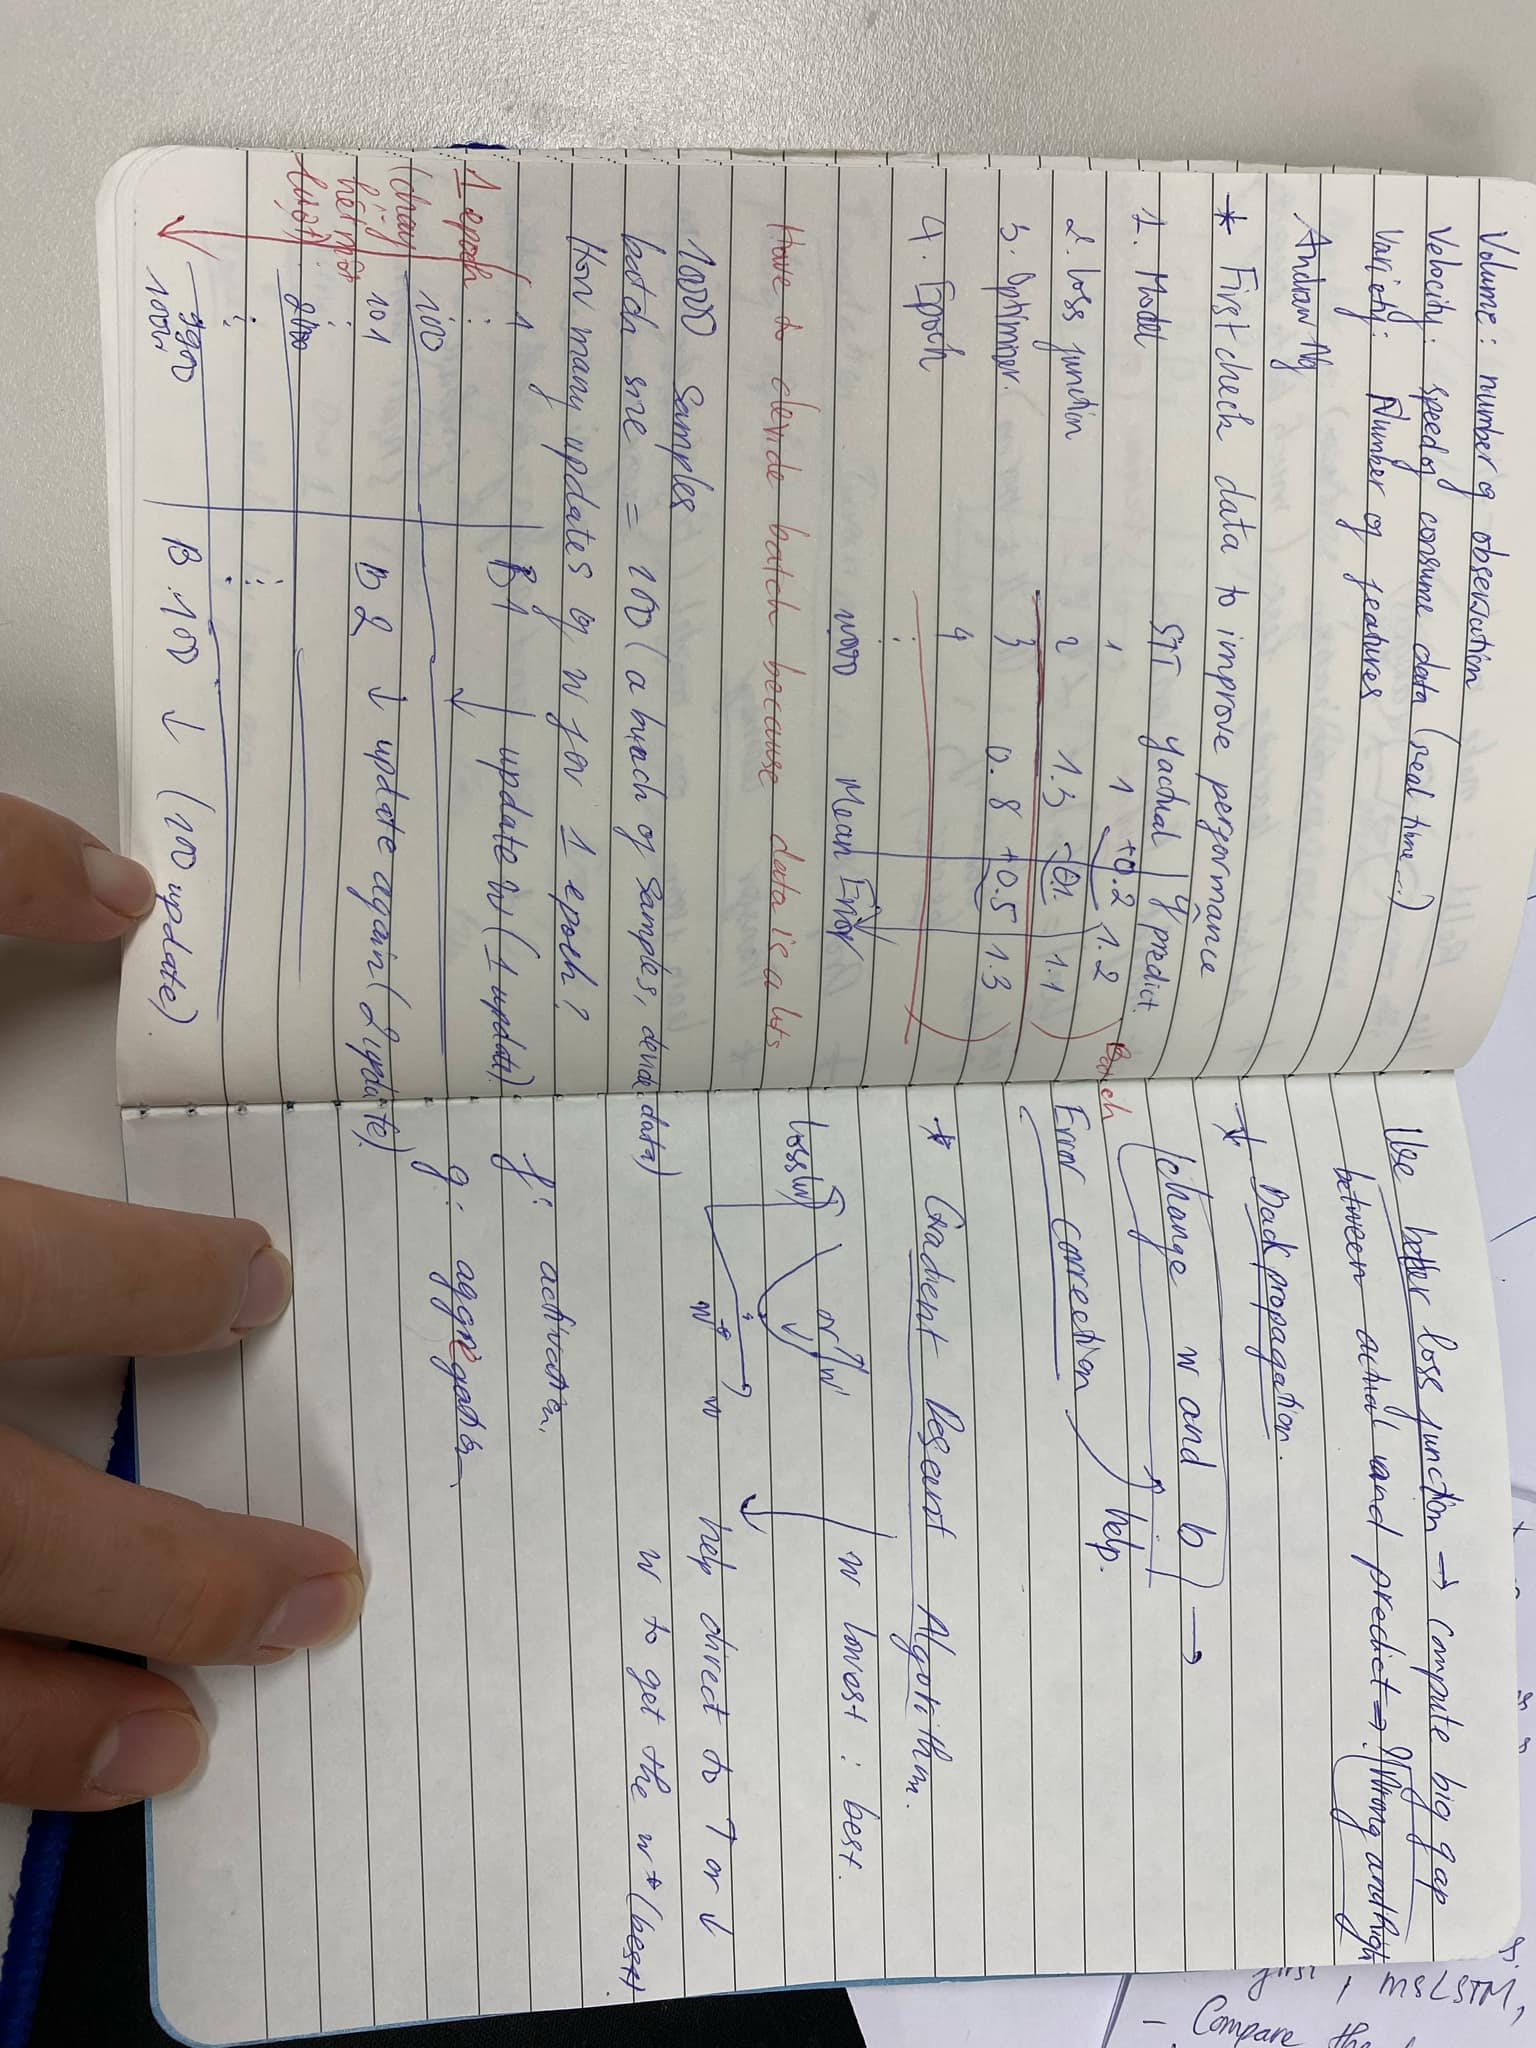 Volume: number of observation
Velocity: speed of consume data (real time...)
Variety: Number of features
Andrew Ng
* First check data to improve performance
STT y actual ŷ predict.
1. Model
1 1 +0.2 1.2
Batch
2. loss function
2 1.3 -0.1 1.1
3. Optimizer.
3 0.8 +0.5 1.3
4. Epoch
4
Mean Error
Have to devide batch because data is a lots
10000 samples
batch size = 100 (a bunch of samples, devide data)
How many updates of w for 1 epoch?
1 epoch
(chạy
hết một
lượt)
1
:
100
B1 ↓ update w (1 update).
101
:
B2 ↓ update again (2 update).
:
9900
B.100 ↓ (100 update).
Use better loss function → compute big gap
between actual and predict → ? Wrong and high
* Back propagation.
change w and b →
help.
Error correction
* Gradient Descent Algorithm.
w lowest : best.
loss(w)
or w
w* w
help direct to ↑ or ↓
w to get the w* (best).
f: activation.
g: aggregation.
MSLSTM,
- Compare the